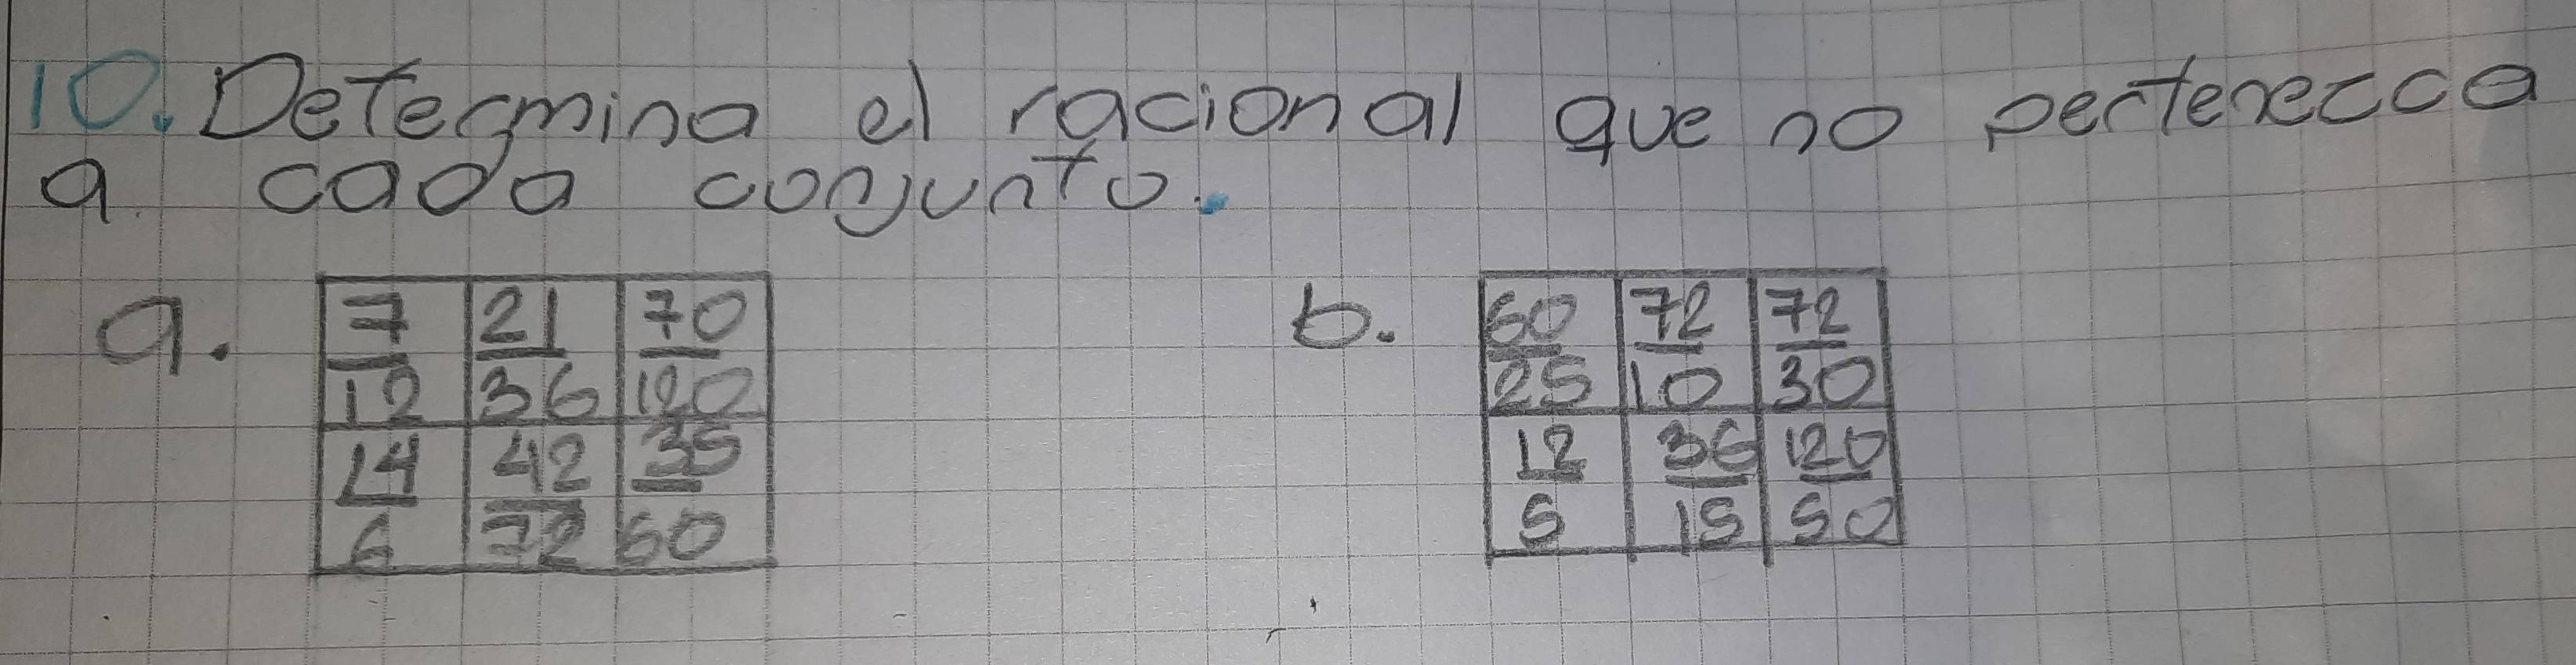 10. Determina el racional que no pertenezca
a cada conjunto.
a. 7/12 21/36 70/120
14/6 42/72 35/60
b. 60/25 72/10 72/30
12/5 36/15 120/50